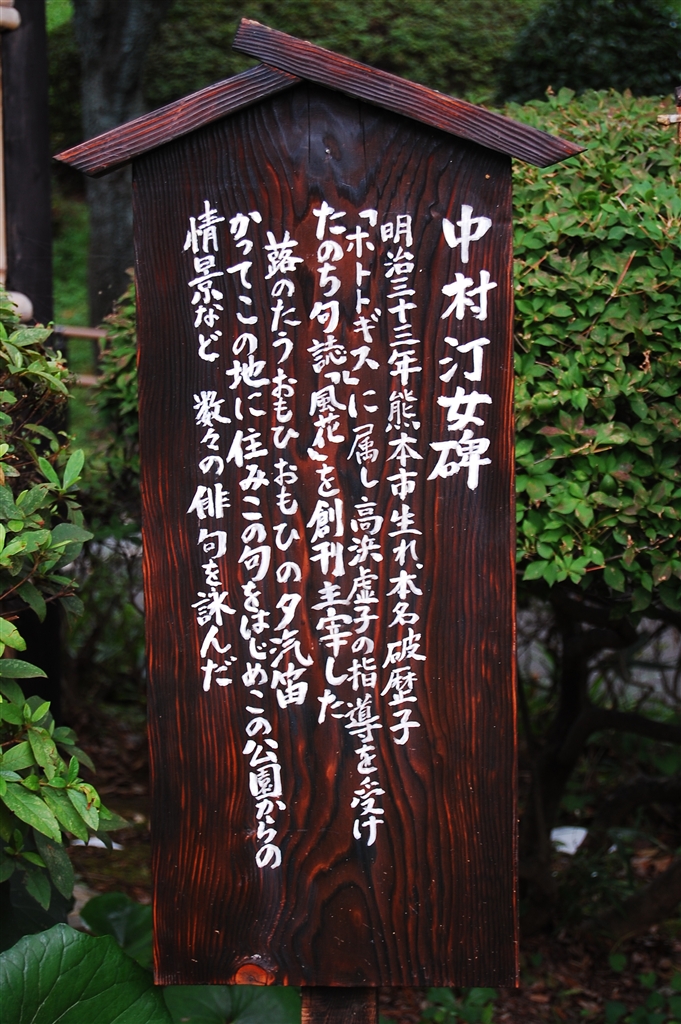 中村汀女碑
明治三十三年熊本市生れ、本名破魔子
「ホトトギス」に属し高浜虚子の指導を受け
たのち句誌「風花」を創刊主宰した
蕗のたうおもひおもひの夕汽笛
かってこの地に住みこの句をはじめこの公園からの
情景など 数々の俳句を詠んだ